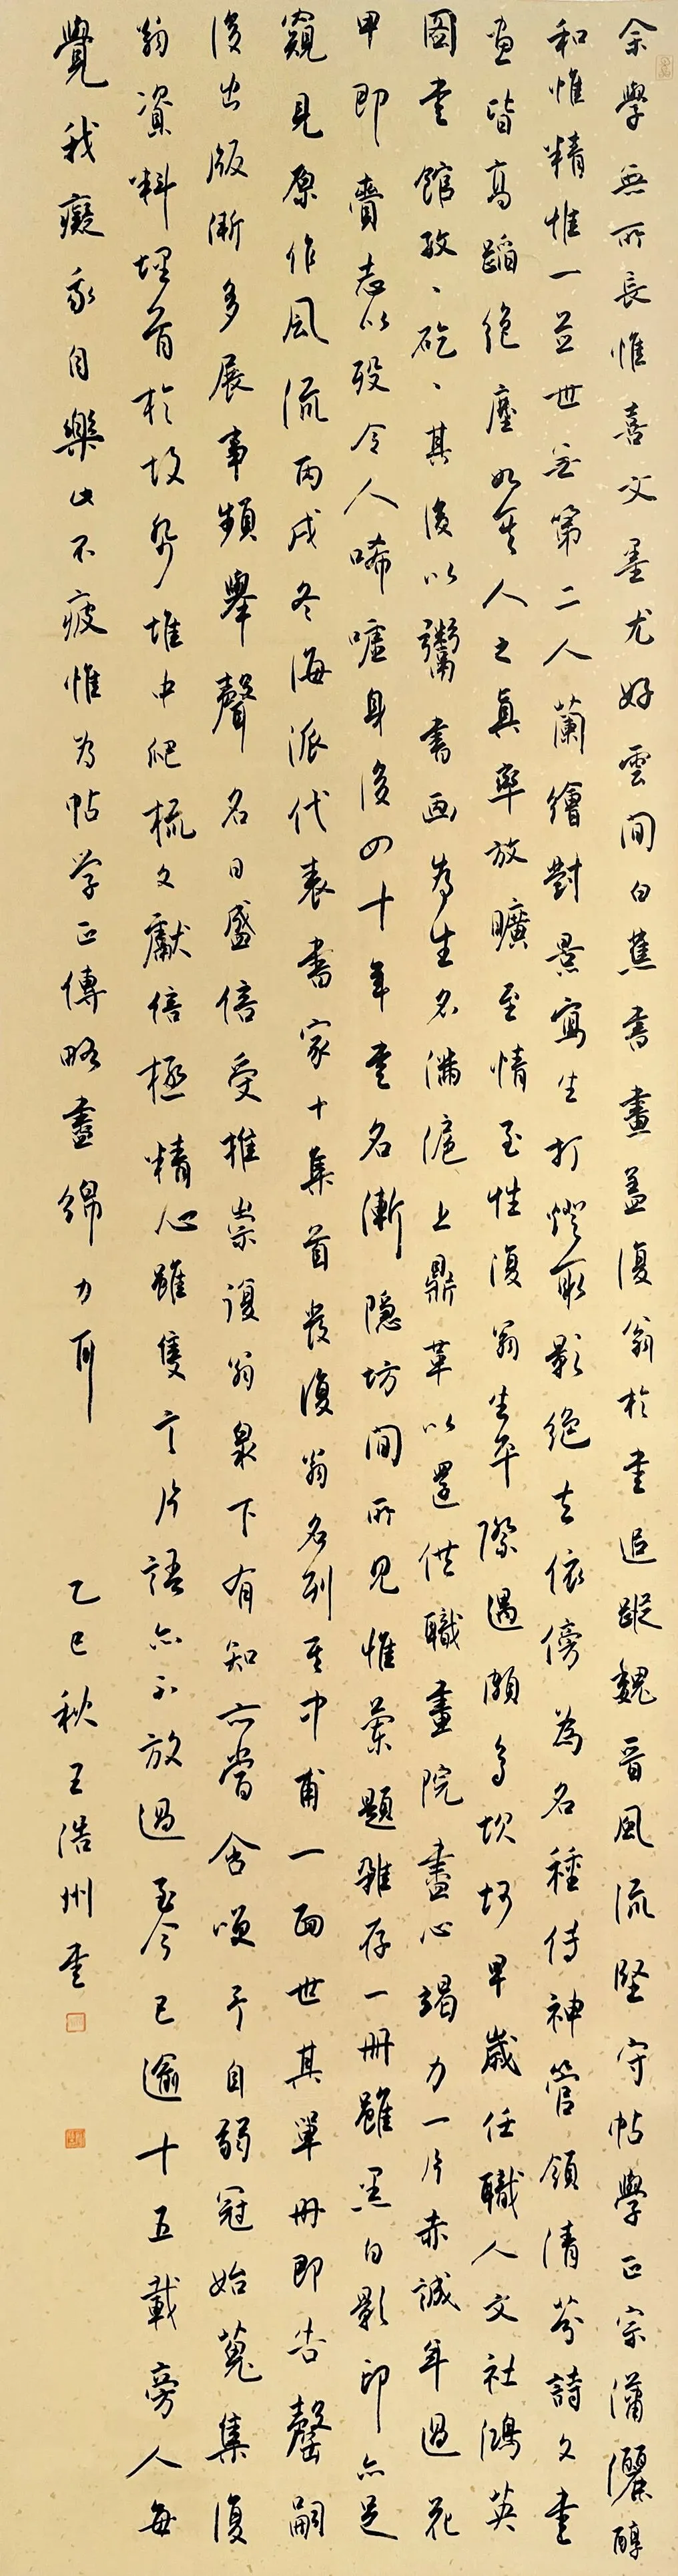 余學無所長惟喜文墨尤好雲間白蕉書畫蓋復翁於書追蹤魏晉風流堅守帖學正宗瀟灑醇
和惟精惟一並世無第二人蘭繪對景寫生打燈取影絕去依傍為名種傳神管領清芬詩文書
畫皆高蹈絕塵如其人之真率放曠至情至性復翁生平際遇頗多坎坷早歲任職人文社鴻英
圖書館孜孜矻矻其後以鬻書画為生名滿滬上鼎革以還供職畫院盡心竭力一片赤誠年過花
甲即齎志以歿令人唏嘘身後四十年書名漸隱坊間所見惟蘭題雜存一冊雖黑白影印亦足
窺見原作風流丙戌冬海派代表書家十集首發復翁名列其中甫一面世其單冊即告罄嗣
後出版漸多展事頻舉聲名日盛倍受推崇復翁泉下有知亦當含笑予自弱冠始蒐集復
翁資料埋首於故紙堆中爬梳文獻倍極精心雖隻言片語亦不放過至今已逾十五載旁人每
覺我癡我自樂此不疲惟為帖学正傳略盡綿力耳
乙巳秋王浩州書